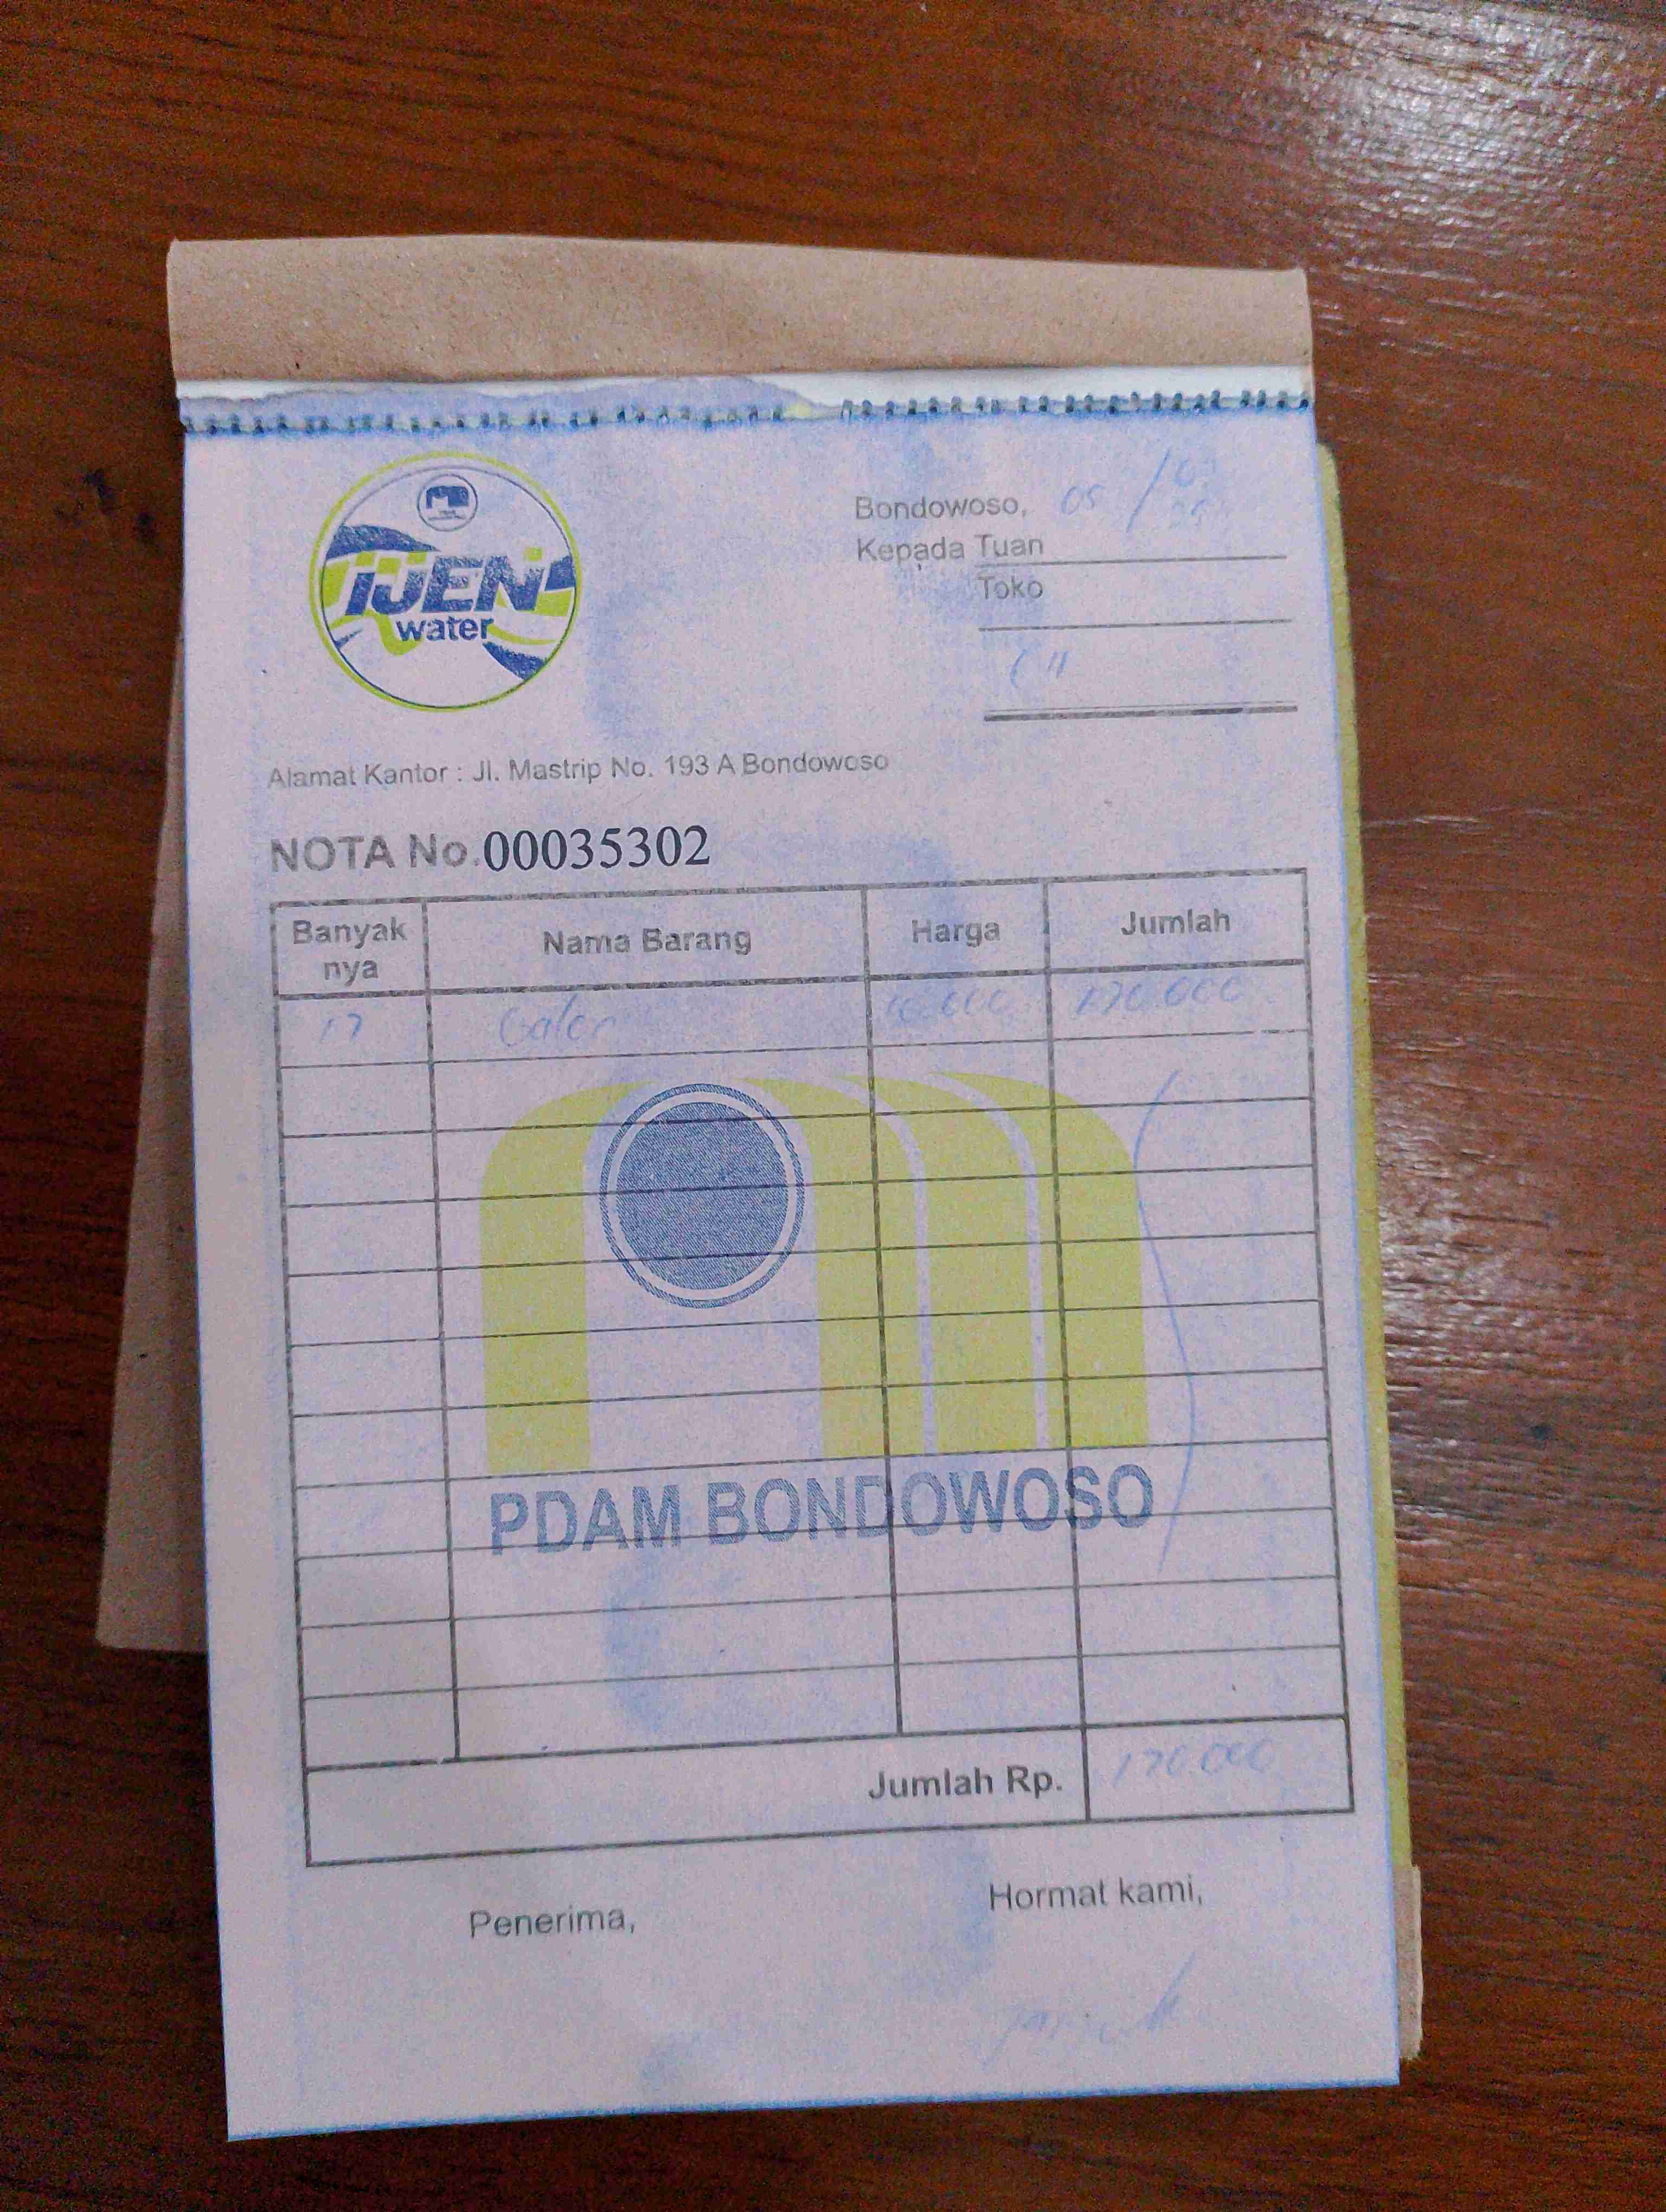 IJEN
water
Bondowoso, 05 /
Kepada Tuan
Toko
Alamat Kantor : Jl. Mastrip No. 193 A Bondowoso
NOTA No. 00035302
Banyak nya Nama Barang Harga Jumlah
17 Galon 10.000 170.000
PDAM BONDOWOSO
Jumlah Rp. 170.000
Penerima, Hormat kami,